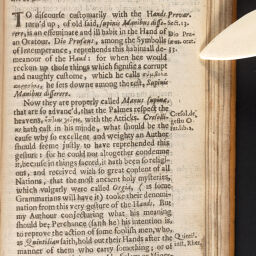 TO discourse customarily with the Hands Prevar.
turn'd up, of old said, supinis Manibus disse- Sect. 13.
rere, is an effeminate and ill habit in the Hand of
an Oratour. Dio Prusæus, among the Symbolls Dio Pru-
of Intemperance, reprehends this habituall de-
meanour of the Hand: for when hee would
reckon up those things which signifie a corrupt
and naughty custome, which he calls
he sets downe among the rest, Supinis
Manibus disserere.
Now they are properly called Manus supinæ,
that are so advanc'd, that the Palmes respect the
heavens, with the Atticks. Cresoll-
us hath cast in his minde, what should be the
cause why so excellent and weighty an Author
should seeme justly to have reprehended this
gesture: for he could not altogether condemne
it, because in things sacred, it hath been so religi-
ous, and received with so great consent of all
Nations, that the most ancient holy mysteries,
which vulgarly were called Orgia, (as some
Grammarians will have it) tooke their denomi-
nation from this very gesture of the Hands. But
my Authour conjecturing what his meaning
should be; Perchance (saith he) his intention is,
to reprove the action of some foolish men, who,
as Quintilian saith, hold out their Hands after the
manner of them who carry something; or at